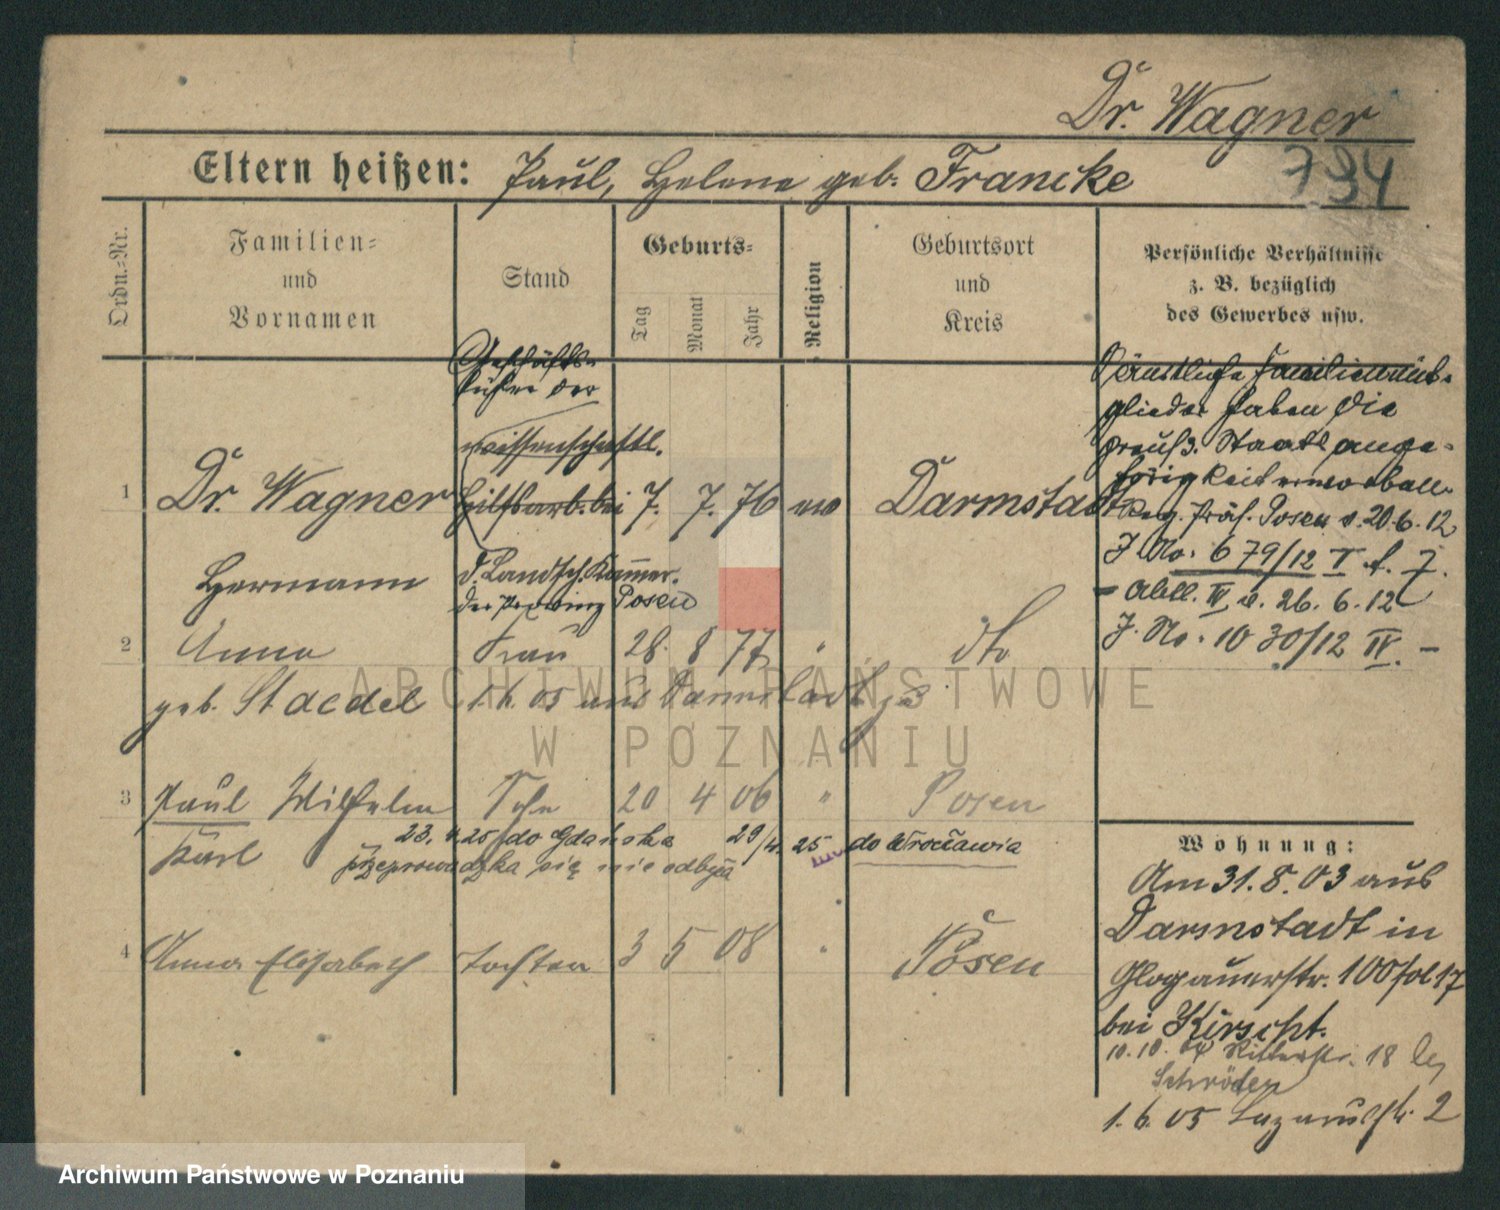 Dr. Wagner
794
Eltern heißen: Paul, Helene geb. Francke
Ordn.-Nr.
Familien-
und
Vornamen
Stand
Geburts-
Tag
Monat
Jahr
Religion
Geburtsort
und
Kreis
Persönliche Verhältnisse
z. B. bezüglich
des Gewerbes usw.
Geschäfts-
führer der
wissenschaftl.
1 Dr. Wagner Hilfsarb. bei 7. 7. 76 ev Darmstadt
Hermann d. Landsch. Kammer.
der Provinz Posen
2 Anna Frau 28. 8 77 " dto
geb. Staedel 1. 6. 05 aus Darmstadt
3 Paul Wilhelm Sohn 20 4 06 " Posen
Karl 23. 4. 25 do Gdańska 29/4. 25 do Wrocławia
przeprowadzka się nie odbyła
4 Anna Elisabeth Tochter 3 5 08 " Posen
Sämtliche Familienmit-
glieder haben die
preuß. Staatsange-
hörigkeit erworben
Reg. Präs. Posen v. 20. 6. 12
J. No. 679/12 I
- Abtl. IV v. 26. 6. 12
J. No. 1030/12 IV. -
Wohnung:
Am 31. 8. 03 aus
Darmstadt in
Glogauerstr. 100
bei Kirscht.
10. 10. 04 Ritterstr. 18 bei
Schröder
1. 6. 05 Lazarusstr. 2
ARCHIWUM PAŃSTWOWE
W POZNANIU
Archiwum Państwowe w Poznaniu